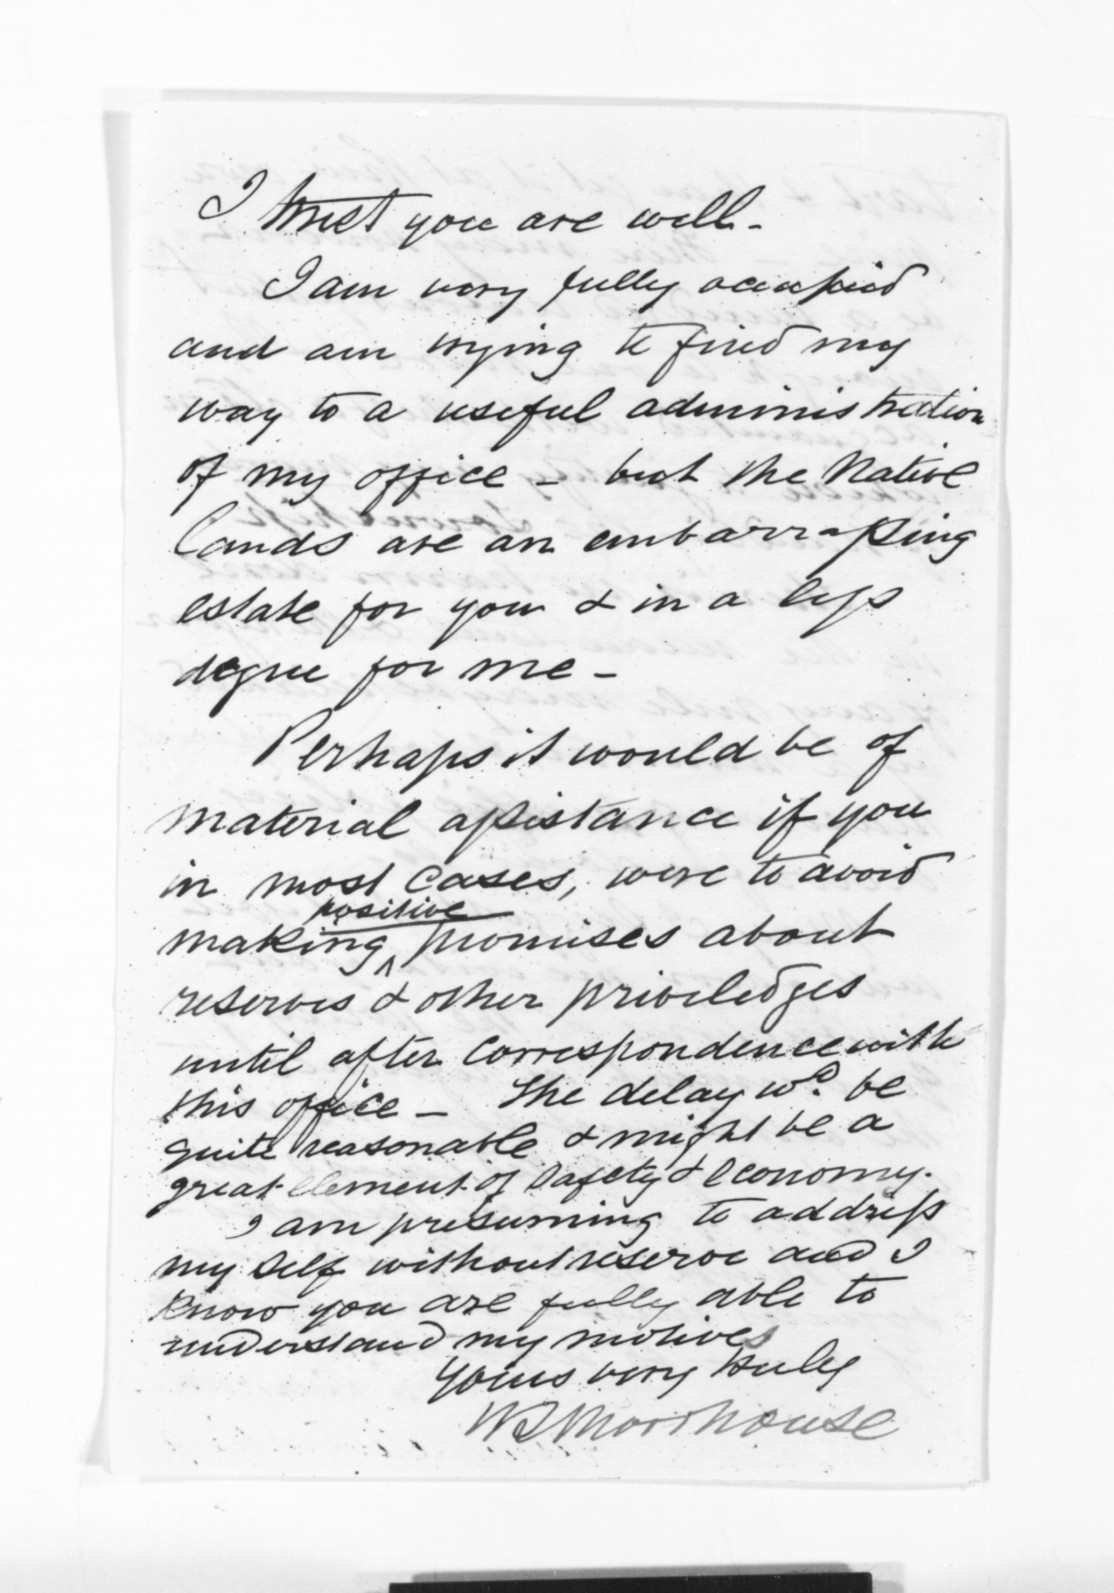 I trust you are well -
I am very fully occupied
and am trying to find my
way to a useful administration
of my office - but the Native
Lands are an embarrassing
estate for you & in a less
degree for me -
Perhaps it would be of
material assistance if you
in most cases, were to avoid
positive
making ^ promises about
reserves & other priviledges
until after correspondence with
this office - The delay wd. be
quite reasonable & might be a
great element of safety & economy.
I am presuming to address
my self without reserve and I
know you are fully able to
understand my motives
Yours very truly
W S Moorhouse